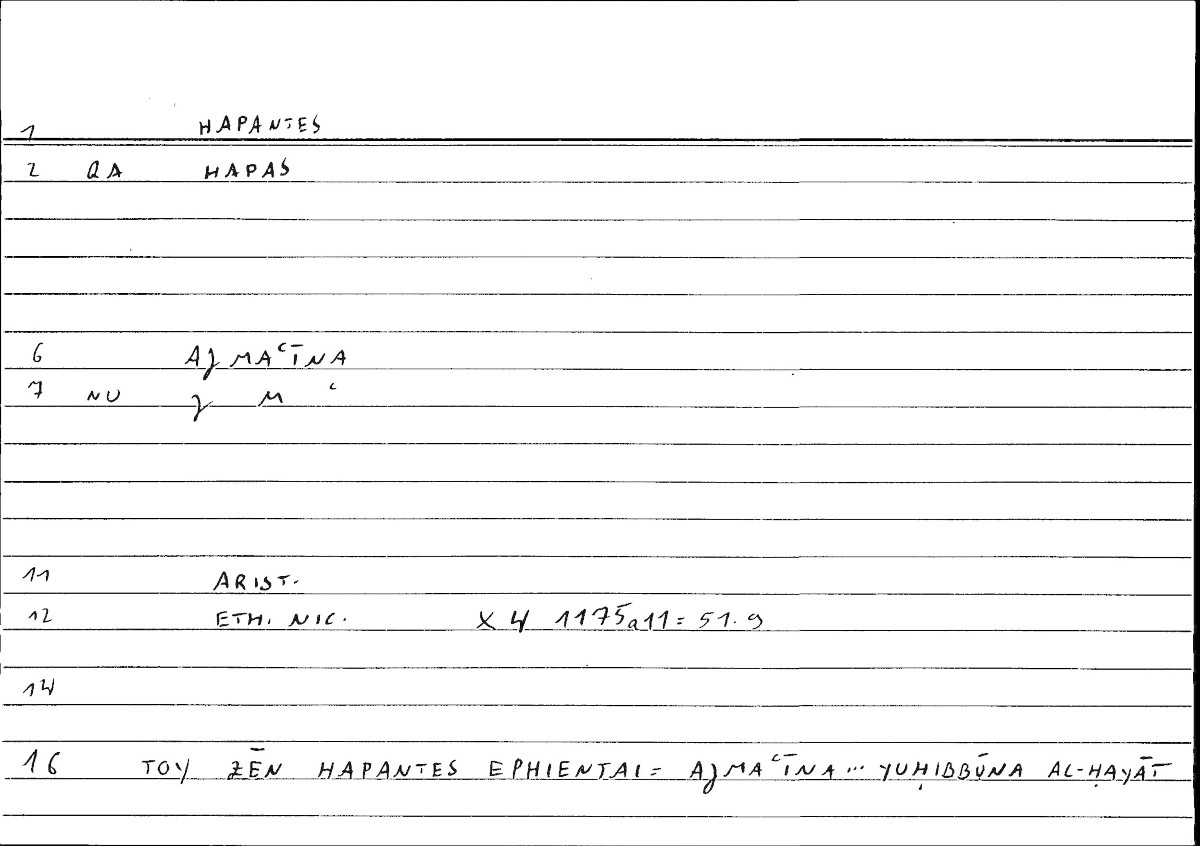 1 HAPANTES
2 QA HAPAS
6 AJMAʿĪNA
7 NU J M ʿ
11 ARIST.
12 ETH. NIC. X 4 1175a11 = 51.9
14
16 TOY ZĒN HAPANTES EPHIENTAI = AJMAʿĪNA ... YUḤIBBŪNA AL-ḤAYĀT